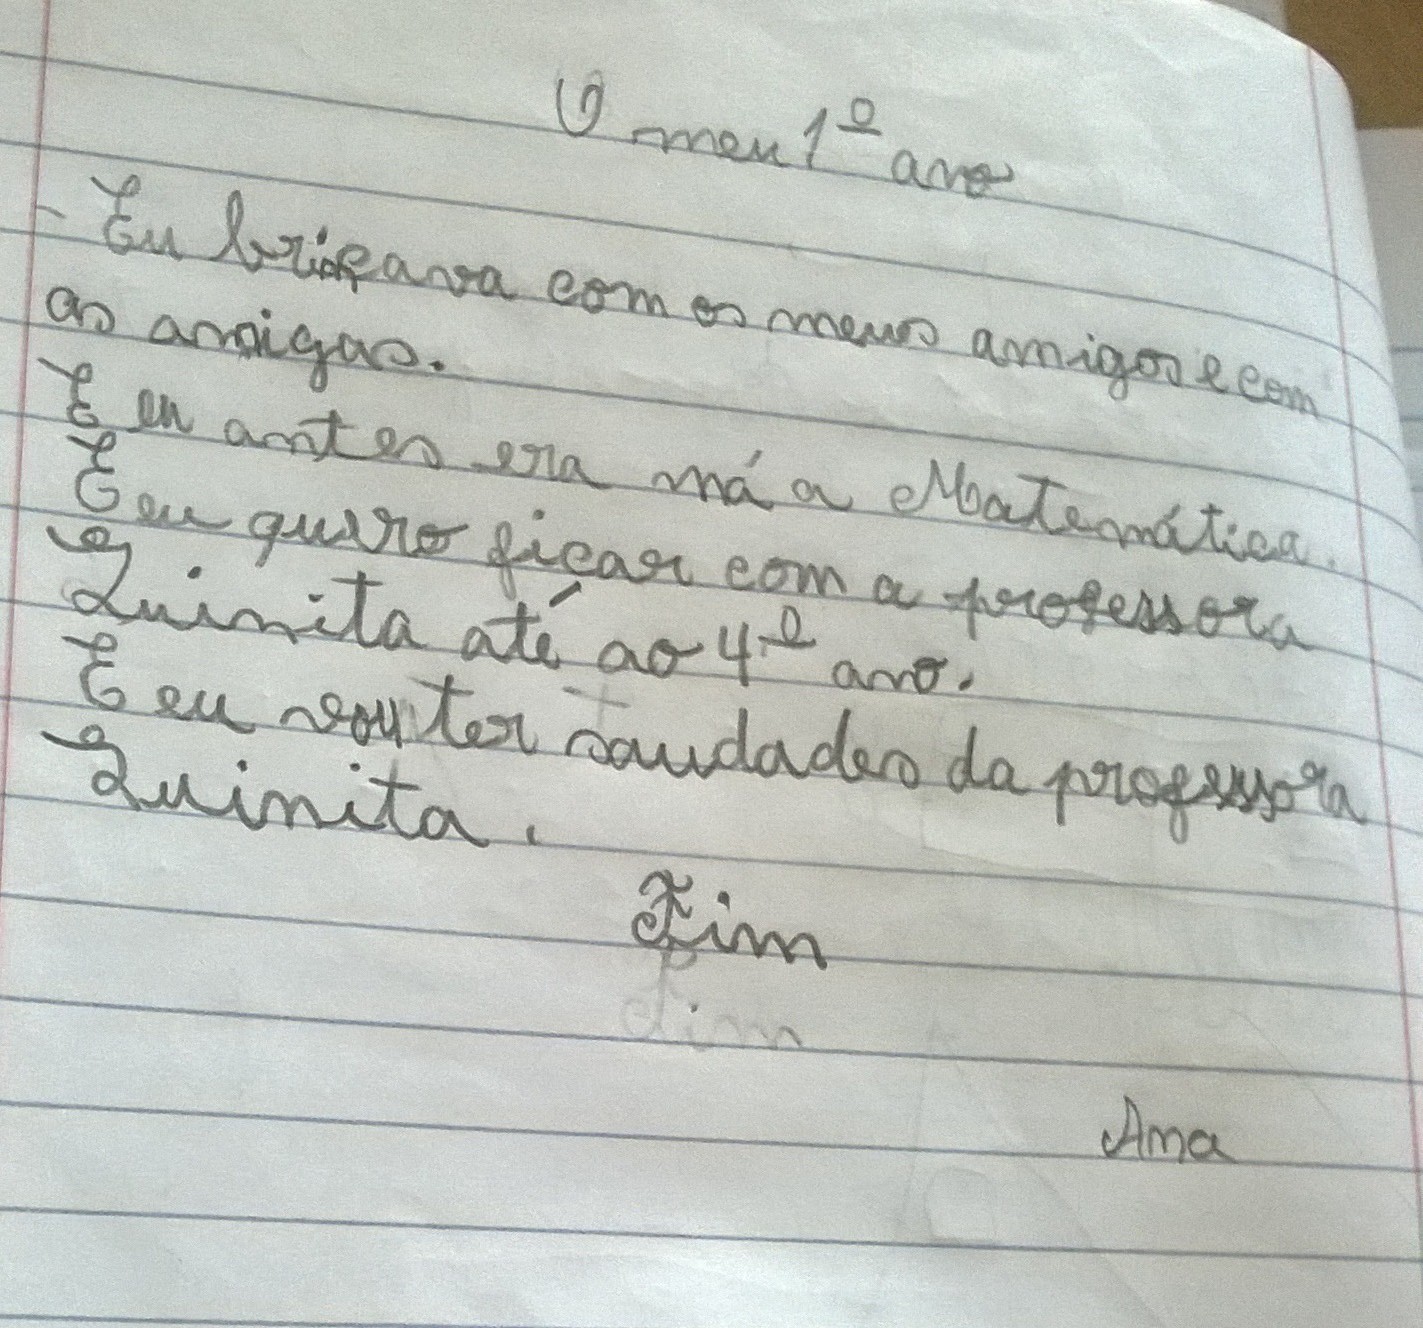 O meu 1º ano
- Eu brincava com os meus amigos e com
as amigas.
E eu antes era má a Matemática.
E eu quero ficar com a professora
Quinita até ao 4º ano.
E eu vou ter saudades da professora
Quinita.
Fim
Fim
Ana